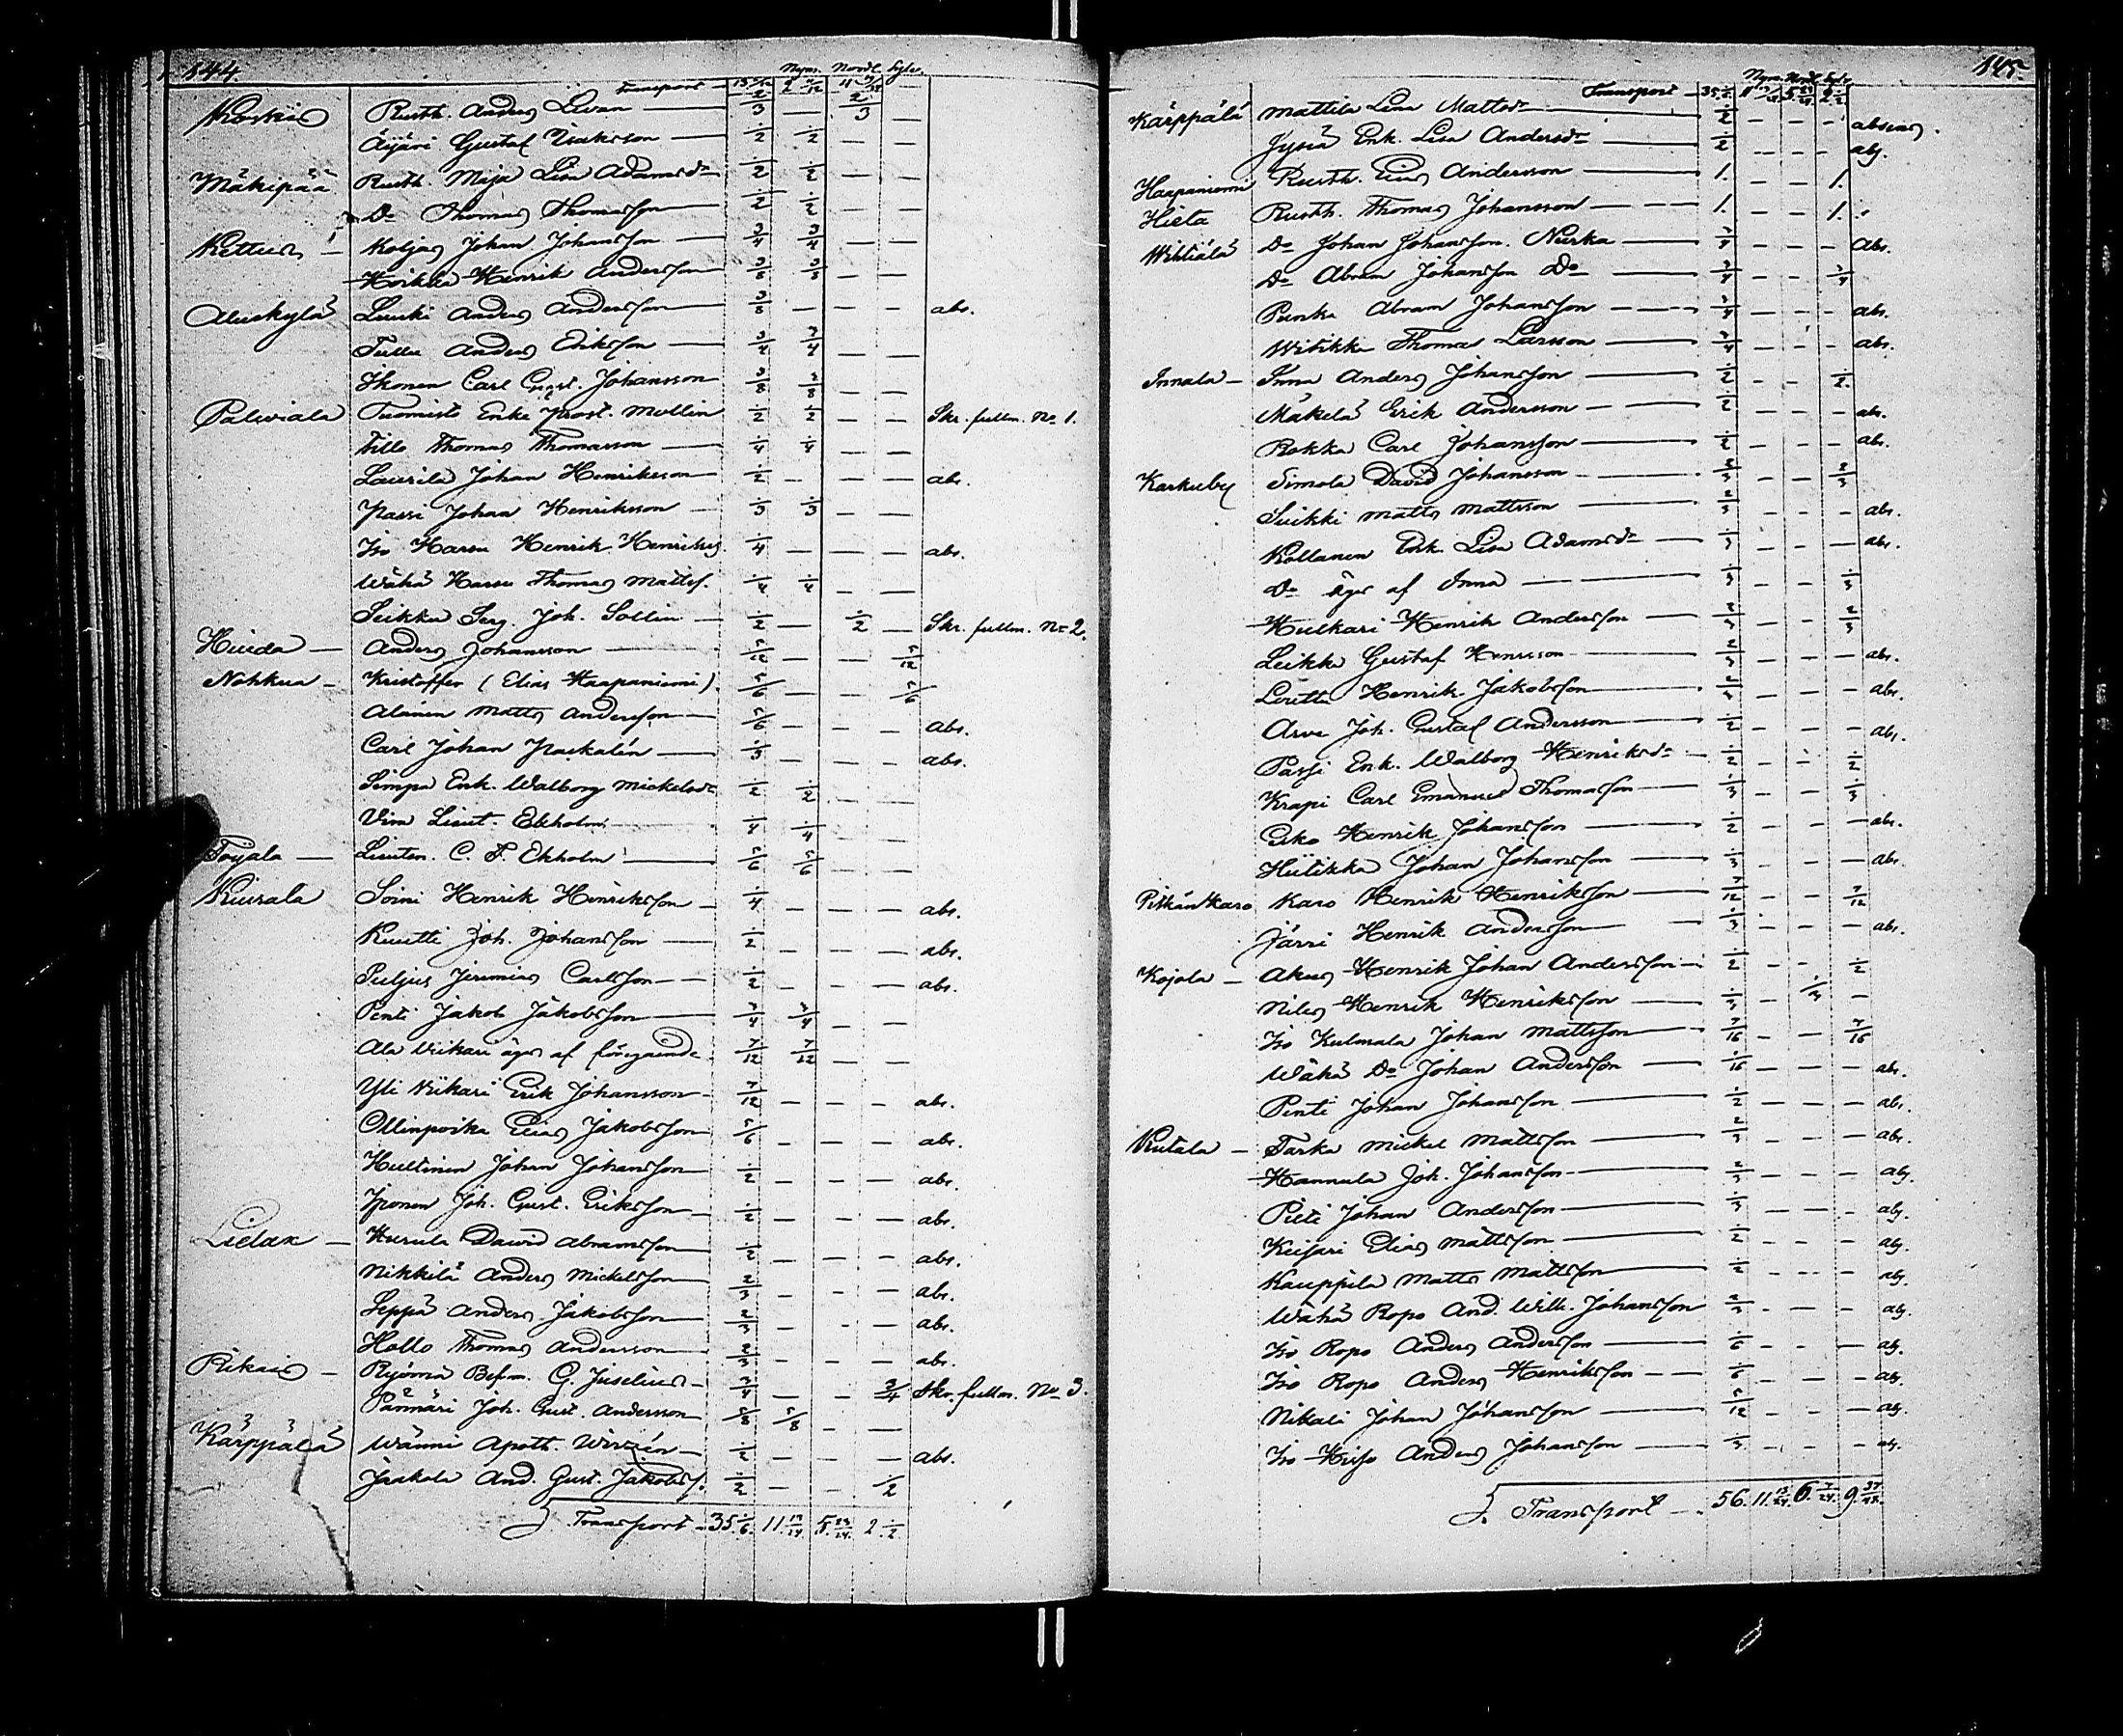 144
Nym. Nordl. Sylv.
Transport
Koskis Rusth. Anders Levan 2/3 — 2/3 —
Äijäri Gustaf Isaksson 1/2 1/2 — —
Mäkipää Rusth. Maja Lisa Adamsdr 1/2 1/2 — —
Do Thomas Thomasson 1/2 1/2 — —
Kettus — Koljas Johan Johansson 3/4 3/4 — —
Heikka Henrik Andersson 3/8 3/8 — —
Aluskylä Anders Andersson 3/8 — — — abs.
Tulla Anders Eriksson 3/4 3/4 — —
Ikonen Carl Gust. Johansson 3/8 3/8 — —
Palviala Tuomisto Enke Prost. Mollin 1/2 1/2 — — Skr. fullm. No 1.
Tillo Thomas Thomasson 1/4 1/4 — —
Laurila Johan Henriksson 1/2 — — — abs.
Passi Johan Henriksson 1/3 1/3 — —
Iso Hassu Henrik Henrikss. 1/4 — — — abs.
Wähä Hassu Thomas Mattss. 1/4 1/4 — —
Seikku Serg. Joh. Sollin 1/2 — 1/2 — Skr. fullm. No 2.
Huida — Anders Johansson 5/12 — — 5/12
Nohkua — Kristoffer (Elias Haapaniemi) 5/6 — — 5/6
Alanen Matts Andersson 5/6 — — — abs.
Carl Johan Packalén 1/3 — — — abs.
Simpa Enk. Walborg Mickelsdr 1/2 1/2 — —
Lieut. Ekholm 1/4 1/4 — —
Tojala — Lieuten. C. F. Ekholm 5/6 5/6 — —
Kiurala Soini Henrik Henriksson 1/4 — — — abs.
Kuutti Joh. Johansson 1/2 — — — abs.
Puljus Jeremias Carlsson 1/2 — — — abs.
Penti Jakob Jakobsson 3/4 3/4 — —
Ala Nikari äges af föregående 7/12 7/12 — —
Yli Nikari Erik Johansson 7/12 — — — abs.
Ollinpoika Elias Jakobsson 5/6 — — — abs.
Hultinen Johan Johansson 1/2 — — — abs.
Iponen Joh. Gust. Eriksson 1/2 — — — abs.
Lielax — Hursula David Abramsson 1/2 — — — abs.
Nikkilä Anders Mickelsson 2/3 — — — abs.
Seppä Anders Jakobsson 2/3 — — — abs.
Hollo Thomas Andersson 2/3 — — — abs.
Rikais — Ryömä Befm. G. Juselius 3/4 — — 3/4 Skr. fullm. No 3.
Pännäri Joh. Gust. Andersson 5/8 5/8 — —
Kärppälä Wänni Apoth. Wirzén 1/2 — — — abs.
Jaakola And. Gust. Jakobss. 1/2 — — 1/2
Transport 35 1/6. 11 13/24. 5 23/24. 2 1/2
145
Nym. Nordl. Sylv.
Transport 35 1/6 11 13/24 5 23/24 2 1/2
Kärppälä Mattila Lisa Mattsdr 1/2 — — — absens.
Jysiä Enk. Lisa Andersdr 1/2 — — — abs.
Haapaniemi Rusth. Elias Andersson 1. — — 1.
Hieta Rusth. Thomas Johansson 1. — — 1.
Wihtiälä Do Johan Johansson Nurka 3/4 — — — abs.
Do Abram Johansson Do 3/4 — — 3/4
Punka Abram Johansson 3/4 — — — abs.
Witikka Thomas Larsson 3/4 — — — abs.
Innala — Inna Anders Johansson 1/2 — — 1/2
Mäkelä Erik Andersson 1/2 — — — abs.
Rokka Carl Johansson 1/2 — — — abs.
Karkuby Simola David Johansson 2/3 — — 2/3
Suikki Matts Mattsson 2/3 — — — abs.
Kollanen Enk. Lisa Adamsdr 1/3 — — — abs.
Do äges af Inna 1/3 — — 1/3
Hulkari Henrik Andersson 2/3 — — 2/3
Leikka Gustaf Henrsson 2/3 — — — abs.
Henrik Jakobsson — — — abs.
Arva Joh. Gustaf Andersson 1/2 — — — abs.
Passi Enk. Walborg Henriksdr 1/2 — — 1/2
Krapi Carl Emanuel Thomasson 1/3 — — 1/3
Eko Henrik Johansson 1/2 — — — abs.
Hutikka Johan Johansson 1/3 — — — abs.
Pitkänkaro Karo Henrik Henriksson 7/12 — — 7/12
Järvi Henrik Andersson 1/3 — — — abs.
Kojola — Akus Henrik Johan Andersson 1/2 — — 1/2
Niles Henrik Henriksson 1/3 — 1/3 —
Iso Kulmala Johan Mattsson 7/16 — — 7/16
Wähä Do Johan Andersson — — — abs.
Penti Johan Johansson 1/2 — — — abs.
Kutala — Tarka Mickel Mattsson 2/3 — — — abs.
Hannula Joh. Johansson 2/3 — — — abs.
Pieti Johan Andersson 1/3 — — — abs.
Keisari Elias Mattsson 1/2 — — — abs.
Kauppila Matts Mattsson 1/2 — — — abs.
Wähä Ropo And. Wilh. Johansson 2/3 — — — abs.
Iso Ropo Anders Andersson 1/6 — — — abs.
Iso Ropo Anders Henriksson 1/6 — — — abs.
Johan Johansson 5/12 — — — abs.
Iso Anders Johansson 1/3 — — — abs.
Transport — 56. 11 13/24. 6 7/24. 9 37/48.